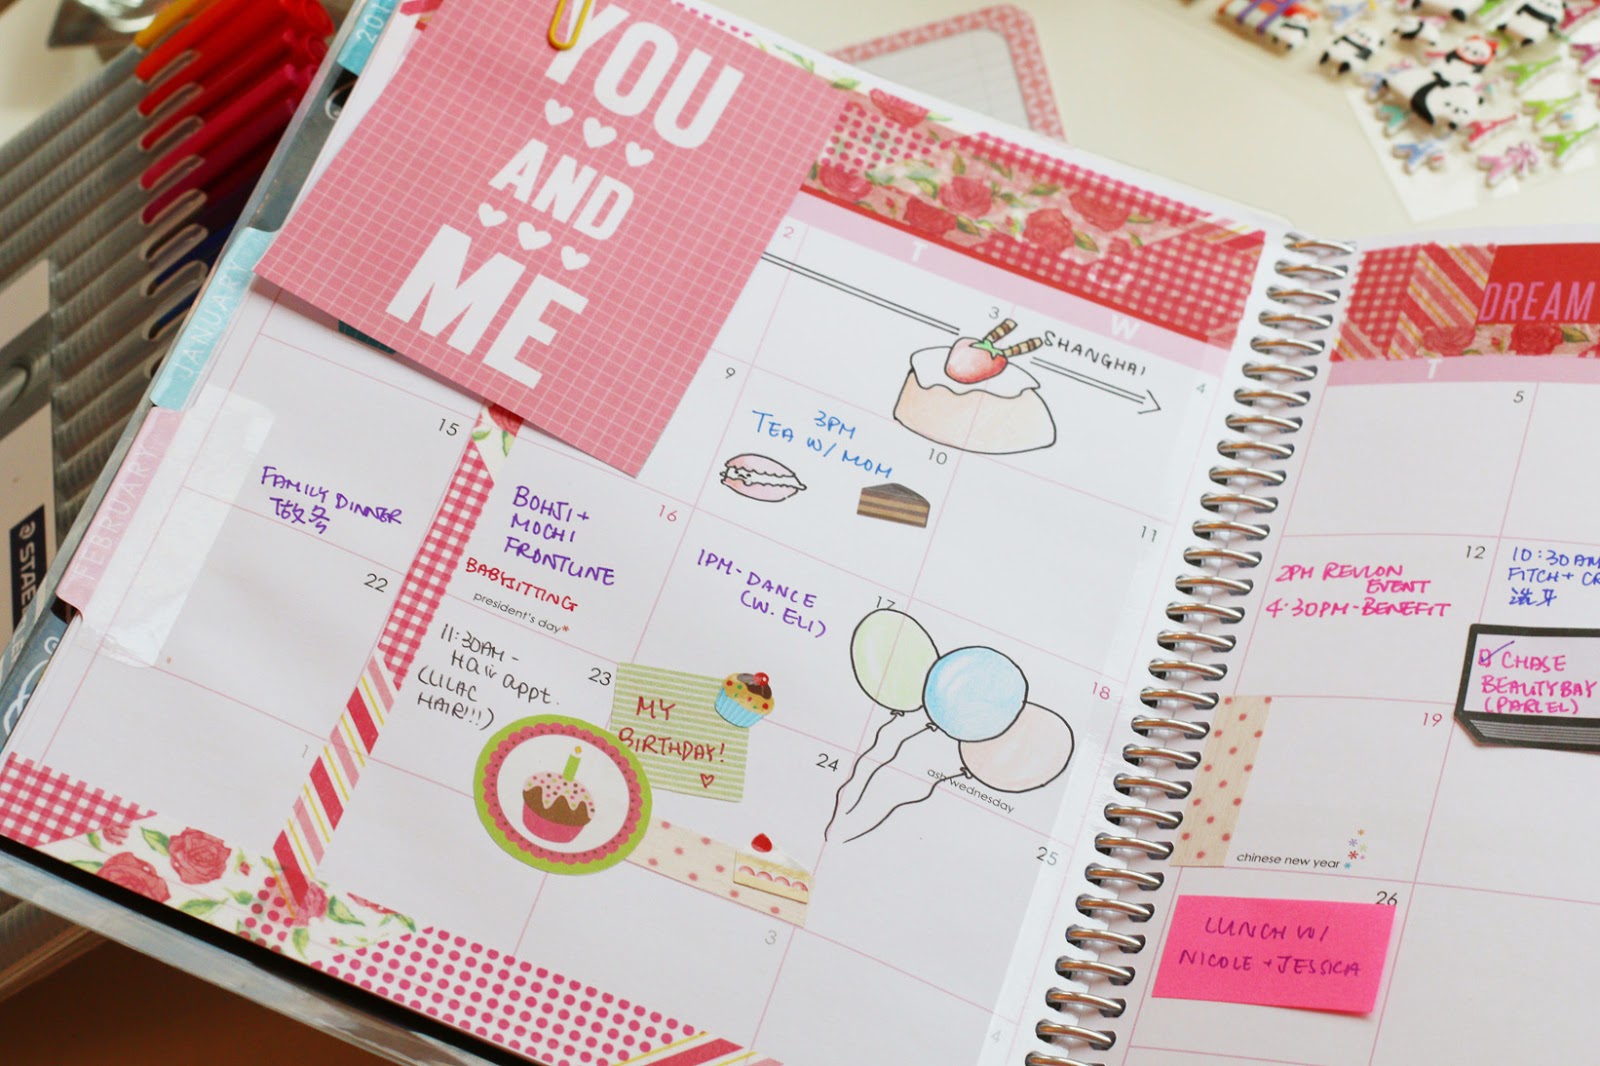 YOU
AND
ME
JANUARY
FEBRUARY
T
W
2
3
4
SHANGHAI
9
3PM
TEA W/ MOM
10
11
15
FAMILY DINNER
BOHJI +
MOCHI
FRONTLINE
16
BABYSITTING
president's day*
1PM - DANCE
(W. ELI)
17
18
22
11:30AM -
Hair appt.
(LILAC
HAIR!!!)
23
MY
BIRTHDAY!
24
ash wednesday
25
1
3
4
DREAM
T
5
12
2PM REVLON
EVENT
4:30PM - BENEFIT
10:30AM
FITCH + CR
洗牙
CHASE
BEAUTYBAY
(PARCEL)
19
chinese new year
26
LUNCH W/
NICOLE + JESSICA
STAE